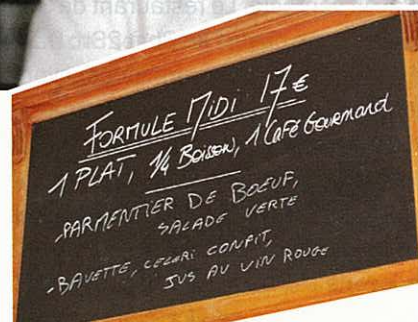 Le restaurant de
FORMULE MIDI 17 €
1 PLAT, 1/4 BOISSON, 1 CAFÉ GOURMAND
- PARMENTIER DE BOEUF,
SALADE VERTE
- BAVETTE, CELERI CONFIT,
JUS AU VIN ROUGE